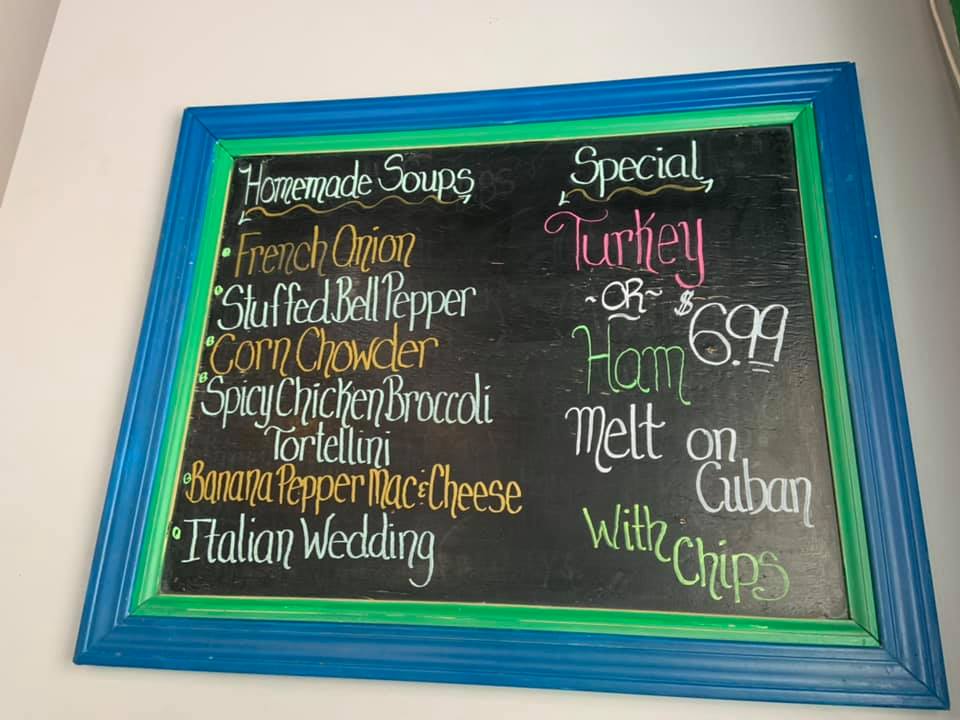 Homemade Soups
• French Onion
• Stuffed Bell Pepper
• Corn Chowder
• Spicy Chicken Broccoli
Tortellini
• Banana Pepper Mac & Cheese
• Italian Wedding
Special
Turkey
~OR~
$6.99
Ham
Melt on
Cuban
With
Chips